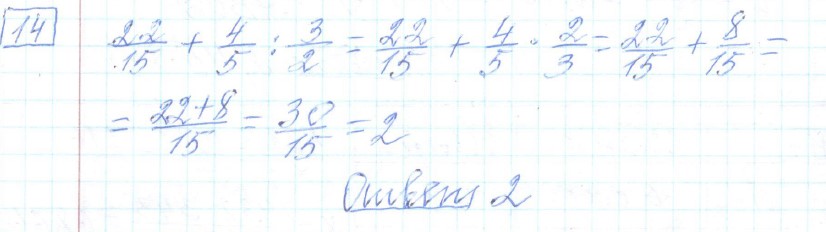 14 22/15 + 4/5 : 3/2 = 22/15 + 4/5 · 2/3 = 22/15 + 8/15 =
= 22+8/15 = 30/15 = 2
Ответ 2